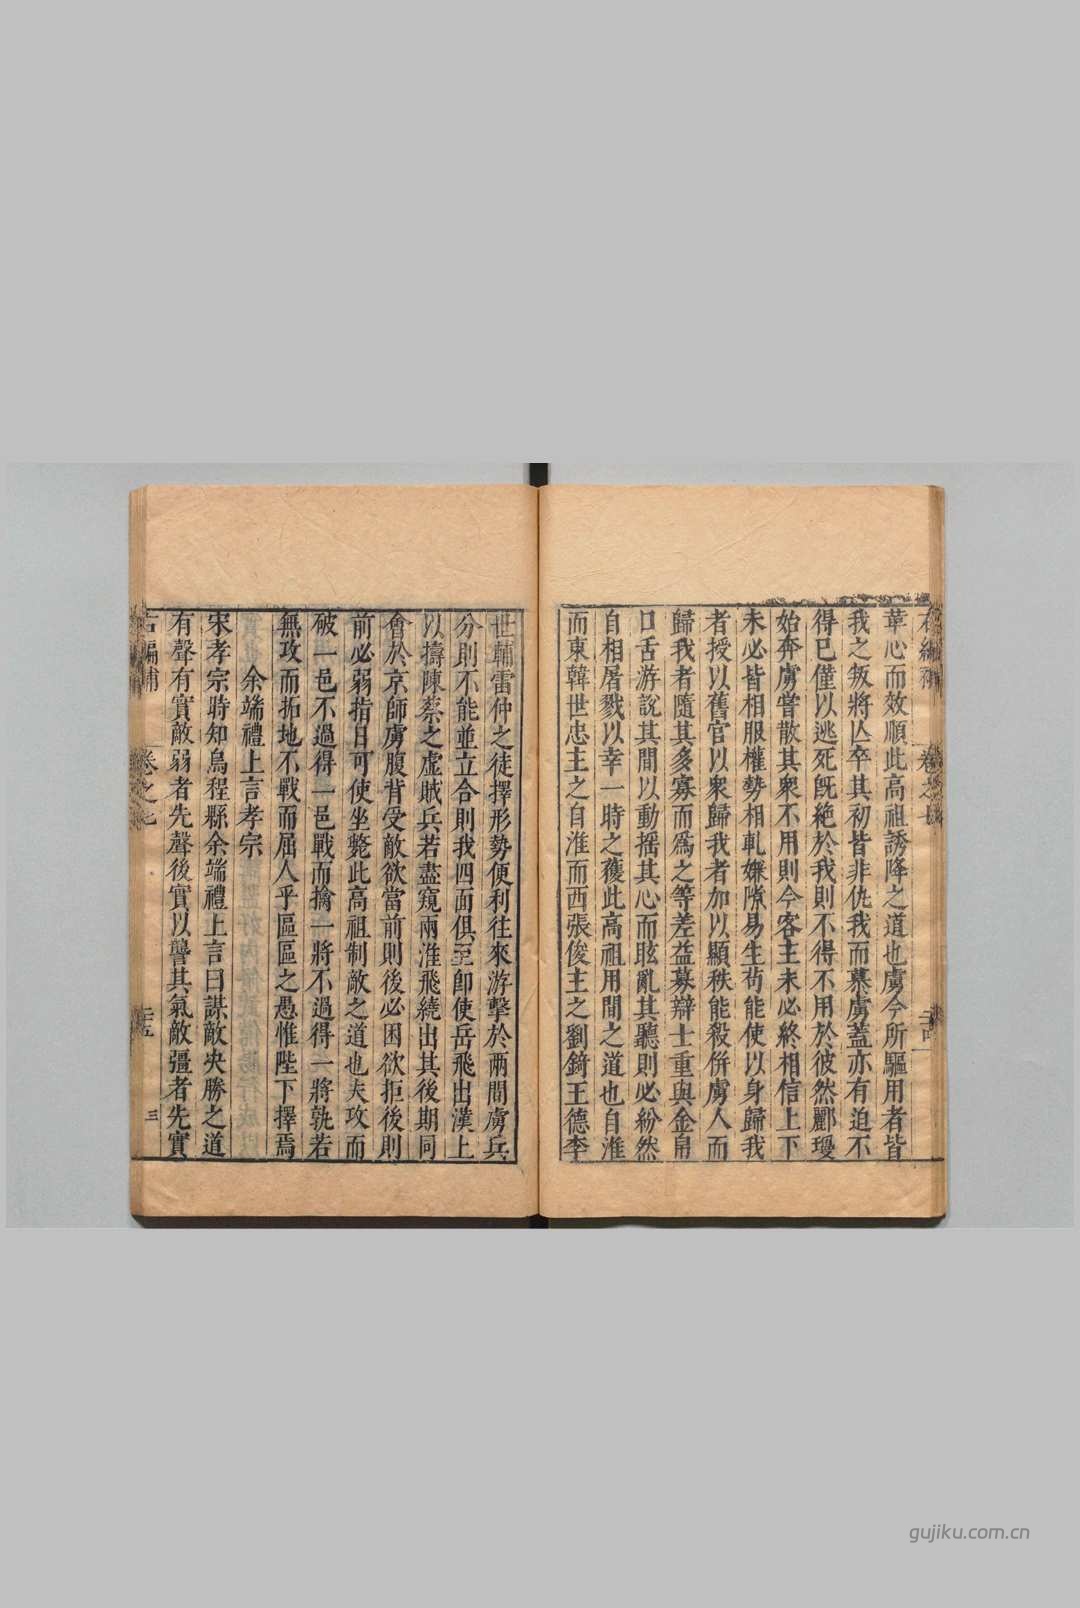 革心而效順此高祖誘降之道也虜今所驅用者皆
我之叛將亾卒其初皆非仇我而慕虜蓋亦有迫不
得已僅以逃死旣絶於我則不得不用於彼然酈瓊
始奔虜嘗散其衆不用則今客主未必終相信上下
未必皆相服權勢相軋嫌隙易生茍能使以身歸我
者授以舊官以衆歸我者加以顯秩能殺併虜人而
歸我者隨其多寡而爲之等差益募辯士重與金帛
口舌游說其間以動揺其心而眩亂其聽則必紛然
自相屠戮以幸一時之獲此高祖用間之道也自淮
而東韓世忠主之自淮而西張俊主之劉錡王德李
世輔雷仲之徒擇形勢便利往來游擊於兩間虜兵
分則不能並立合則我四面俱至卽使岳飛出漢上
以擣陳蔡之虛賊兵若盡窺兩淮飛繞出其後期同
會於京師虜腹背受敵欲當前則後必困欲拒後則
前必弱指日可使坐斃此高祖制敵之道也夫攻而
破一邑不過得一邑戰而擒一將不過得一將孰若
無攻而拓地不戰而屈人乎區區之愚惟陛下擇焉
余端禮上言孝宗
宋孝宗時知烏程縣余端禮上言曰謀敵決勝之道
有聲有實敵弱者先聲後實以讋其氣敵彊者先實
右編補
卷之七
三
gujiku.com.cn